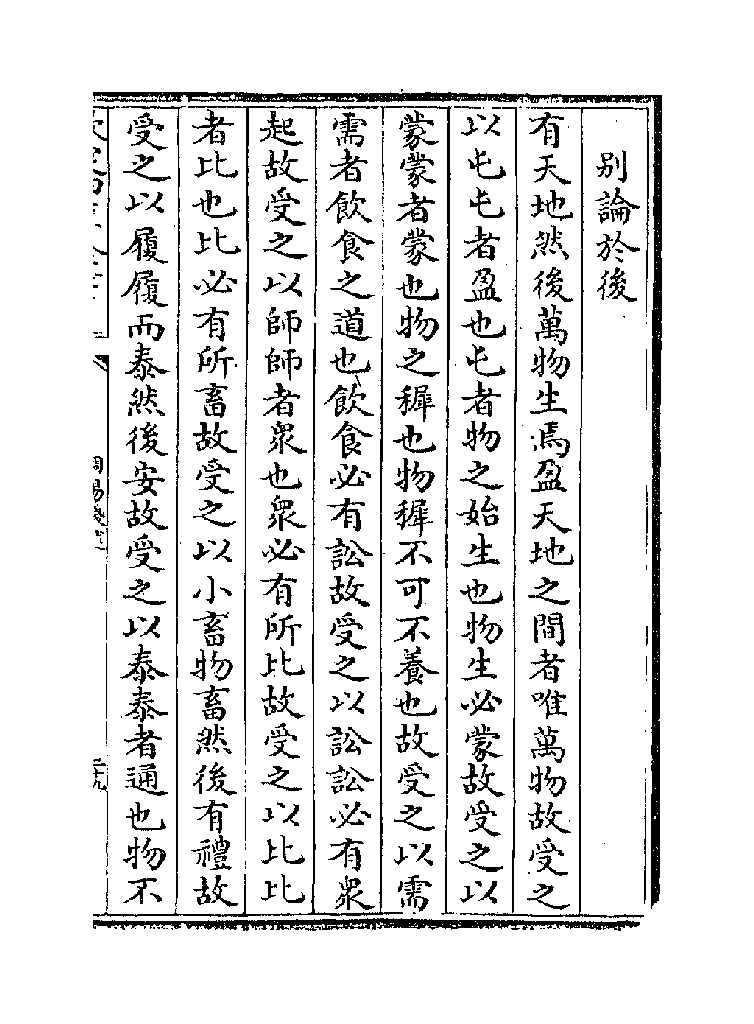 别論於後
有天地然後萬物生焉盈天地之間者唯萬物故受之
以屯屯者盈也屯者物之始生也物生必蒙故受之以
蒙蒙者蒙也物之穉也物穉不可不養也故受之以需
需者飲食之道也飲食必有訟故受之以訟訟必有衆
起故受之以師師者衆也衆必有所比故受之以比比
者比也比必有所畜故受之以小畜物畜然後有禮故
受之以履履而泰然後安故受之以泰泰者通也物不